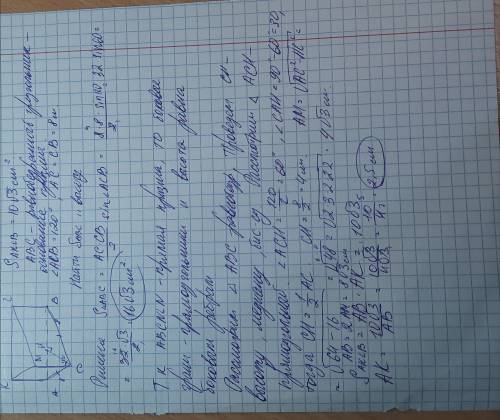 S AKLB = 10√3 см²
ABC - равнобедренный треугольник -
основание призмы
∠ACB = 120° AC = CB = 8 см
Найти Sосн, высоту
K L
M H
A B
C
Решение S ABC = AC·CB · sin ACB / 2 = 8·8·sin 120 / 2 = 32·sin 60 =
= 32√3 / 2 = 16√3 см²
Т.к. ABCKLN - прямая призма, то боковые
грани - прямоугольники и высота равна
боковым ребрам
Рассмотрим △ABC равнобедр, Проведем CH -
высоту, медиану, биссу. Рассмотрим △ACH -
прямоугольный ∠ACH = 120/2 = 60°, ∠CAH = 90° - 60° = 30,
тогда CH = 1/2 AC CH = 8/2 = 4 см AH = √AC² - HC² =
= √64 - 16 = √48 = √2·3·2·2·2 = 4√3 см
AB = 2AH = 8√3 см
S AKLB = AB · AK = 10√3
AK = 10√3 / AB = 10√3 = 10 = 2,5 см